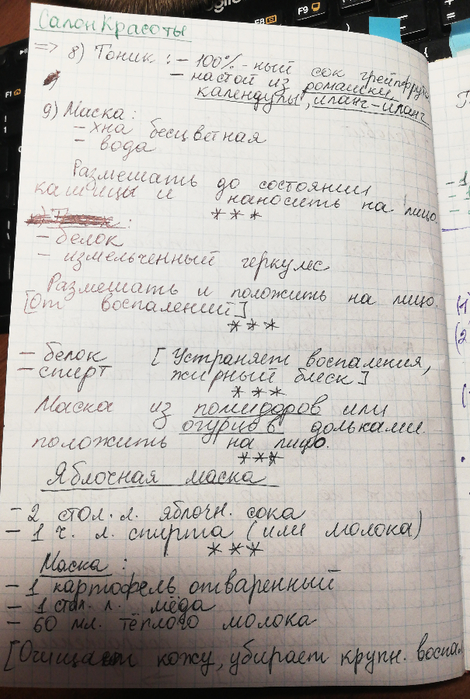 Салон Красоты
=> 8) Тоник: - 100%-ный сок грейпфрута
- настой из ромашки,
календулы, иланг-иланг
9) Маска:
- хна бесцветная
- вода
Размешать до состояния
кашицы и наносить на лицо.
***
- белок
- измельченный геркулес
Размешать и положить на лицо.
[От воспалений]
***
- белок [Устраняет воспаления,
- спирт жирный блеск]
***
Маска из помидоров или
огурцов дольками
положить на лицо.
***
Яблочная маска
- 2 стол. л. яблочн. сока
- 1 ч. л. спирта (или молока)
***
Маска:
- 1 картофель отваренный
- 1 стол. л. мёда
- 60 мл. тёплого молока
[Очищает кожу, убирает крупн. воспал